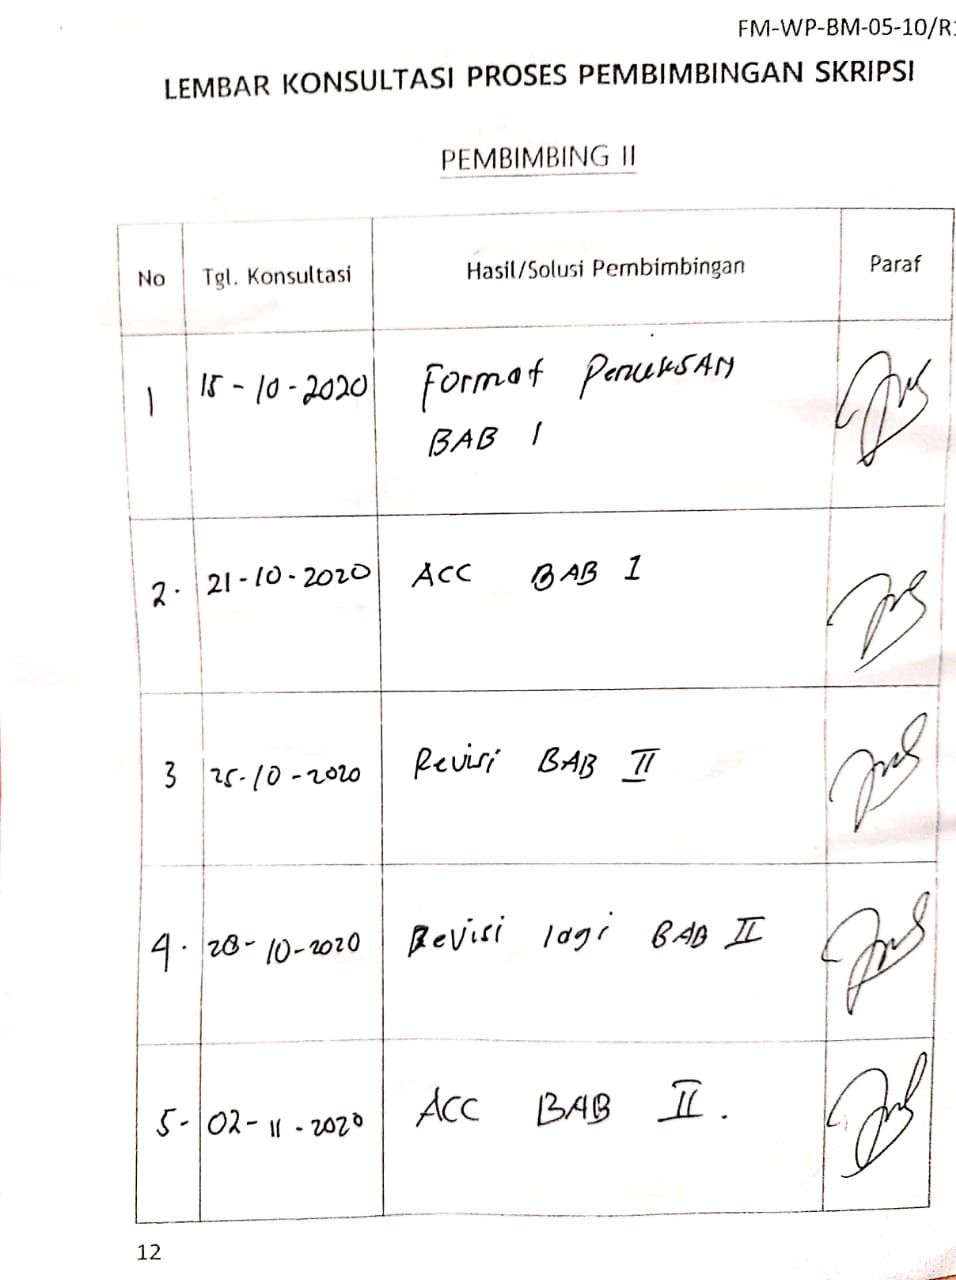 FM-WP-BM-05-10/R1
LEMBAR KONSULTASI PROSES PEMBIMBINGAN SKRIPSI
PEMBIMBING II
No Tgl. Konsultasi Hasil/Solusi Pembimbingan Paraf
1 15-10-2020 Format Penulisan
BAB 1
2. 21-10-2020 ACC BAB I
3 25-10-2020 Revisi BAB II
4. 28-10-2020 Revisi lagi BAB II
5- 02-11-2020 ACC BAB II.
12